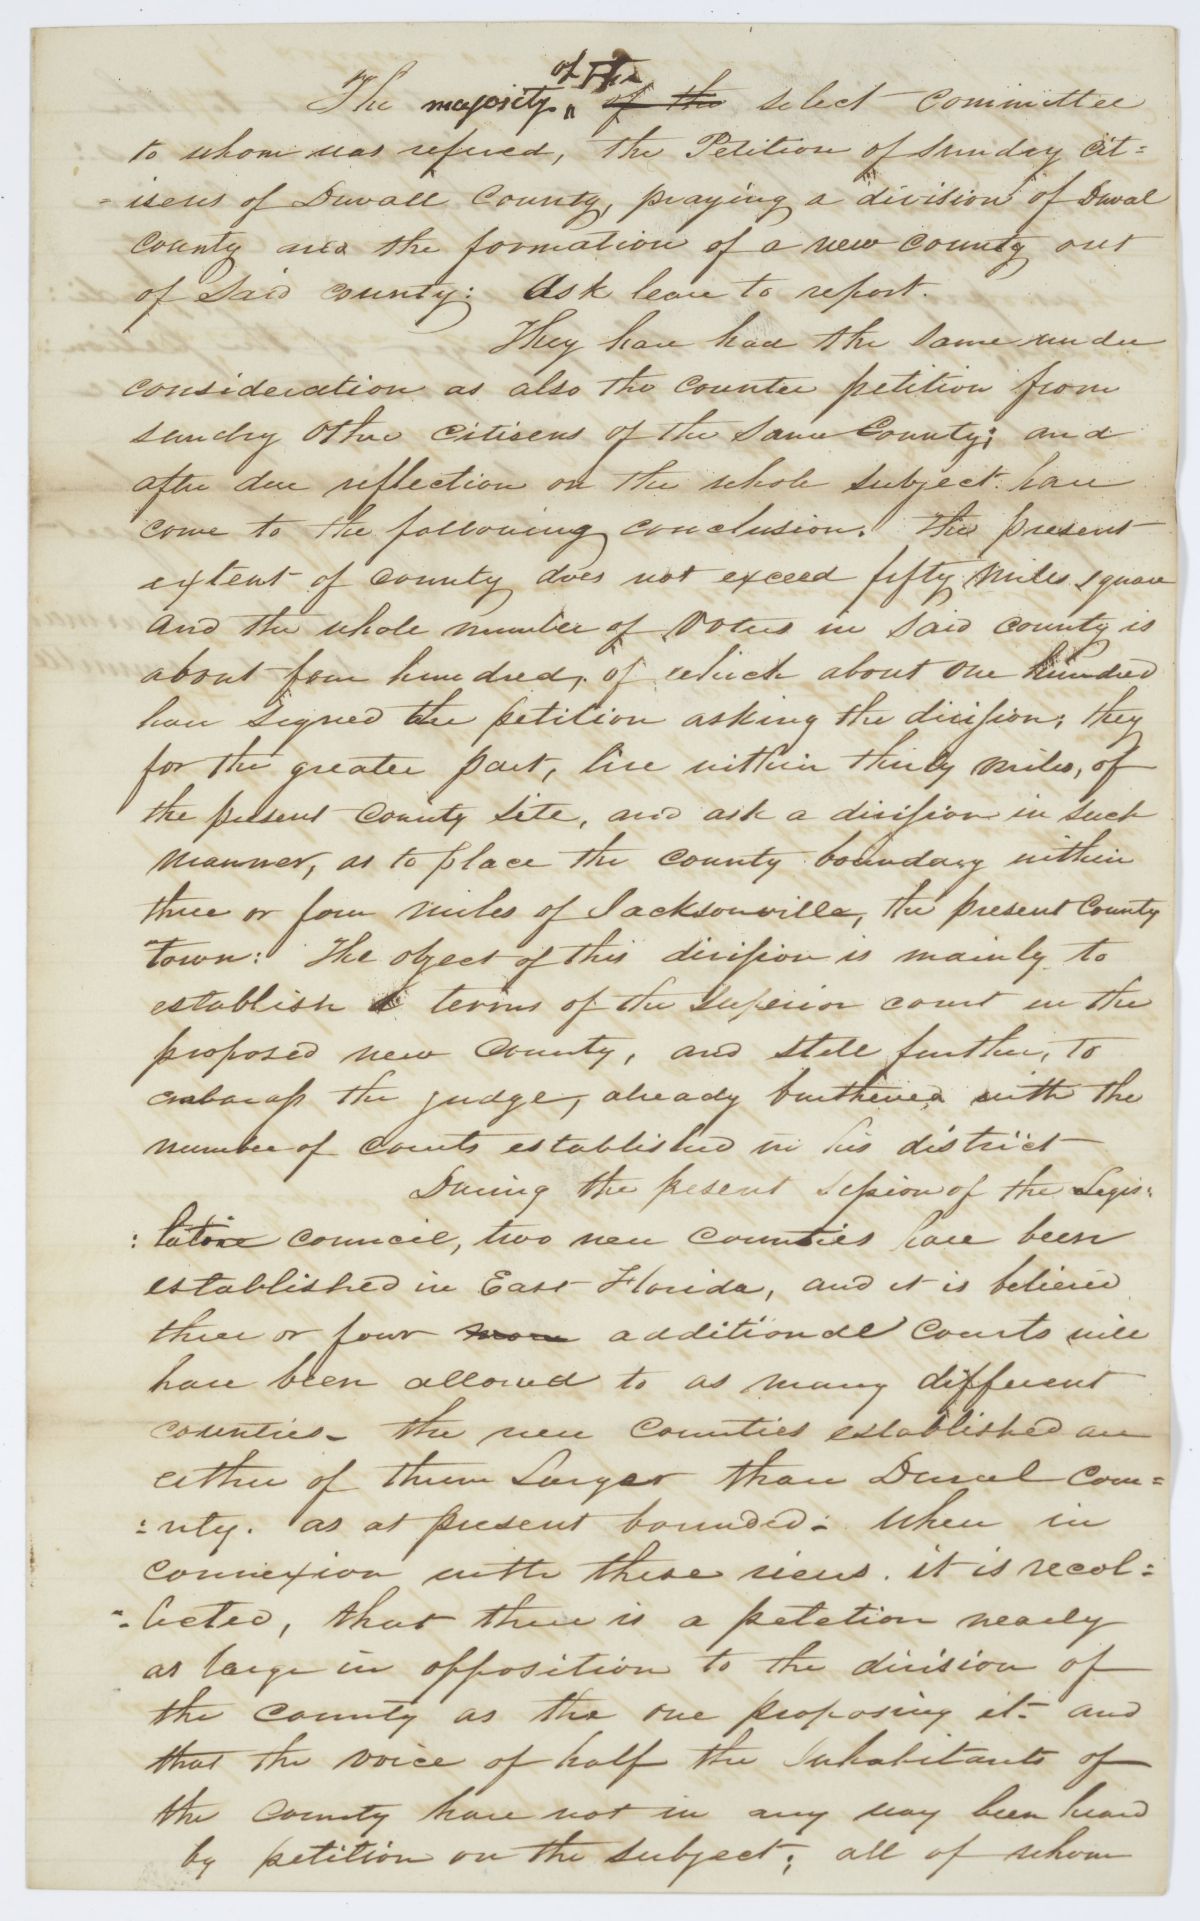 The majority of The ~~of the~~ select committee
to whom was refered, the Petition of sunday cit=
=isens of Duvall County, praying a division of Duval
county and the formation of a new county out
of Said county: Ask leave to report.
They have had the same under
consideration as also the counter petition from
sundry other citisens of the same County; and
after due reflection on the whole subject have
come to the following conclusion. The present
extent of county does not exceed fifty miles square
and the whole number of Voters in Said county is
about four hundred, of which about one hundred
have signed the petition asking the division; they
for the greater part, live within thirty miles, of
the present County site, and ask a division in such
manner, as to place the county boundary within
three or four miles of Jacksonville, the present County
Town: The object of this division is mainly to
establish terms of the Superior court in the
proposed new County, and still further, to
embarass the judge, already burthened with the
number of courts established in his district
During the present Session of the Legis:
:lative council, two new counties have been
established in East Florida, and it is believed
three or four ~~more~~ additional courts will
have been allowed to as many different
counties - the new counties established are
either of them Larger than Duval Cou=
:nty. as at present bounded - When in
connexion with these views. it is recol=
=lected, that there is a petetion nearly
as large in opposition to the division of
the county as the one proposing it - and
that the voice of half the Inhabitants of
the county have not in any way been heard
by petition on the subject; all of whom